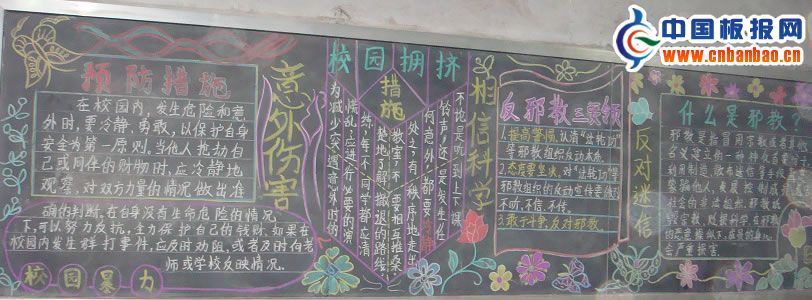 中国板报网
www.cnbanbao.cn
预防措施
在校园内,发生危险和意
外时,要冷静、勇敢,以保护自身
安全为第一原则。当他人抢劫自
己或同伴的财物时,应冷静地
观察,对双方力量的情况做出准
确的判断,在自身没有生命危险的情况
下,可以努力反抗,主力保护自己的钱财,如果在
校园内发生群打事件,应及时劝阻,或者及时向老
师或学校反映情况。
校园暴力
意外伤害
校园拥挤
措施
为减少突遇意外时的
慌乱,应进行必要的演
练,每一同学都应清
楚地了解撤退的路线
教室,不要相互推桑,
处之,有秩序地走出
何意外,都要冷静
铃声,还是发生任
不论是听到上下课
相信科学
反邪教三要领
1.提高警惕,认清“法轮功”
等邪教组织反动本质。
2.态度要坚决,对“法轮功”等
邪教组织的反动宣传要做到
不听、不信、不传。
3.敢于斗争,反对邪教
反对迷信
什么是邪教?
邪教是指冒用宗教或者其他
名义建立的
会严重损害。